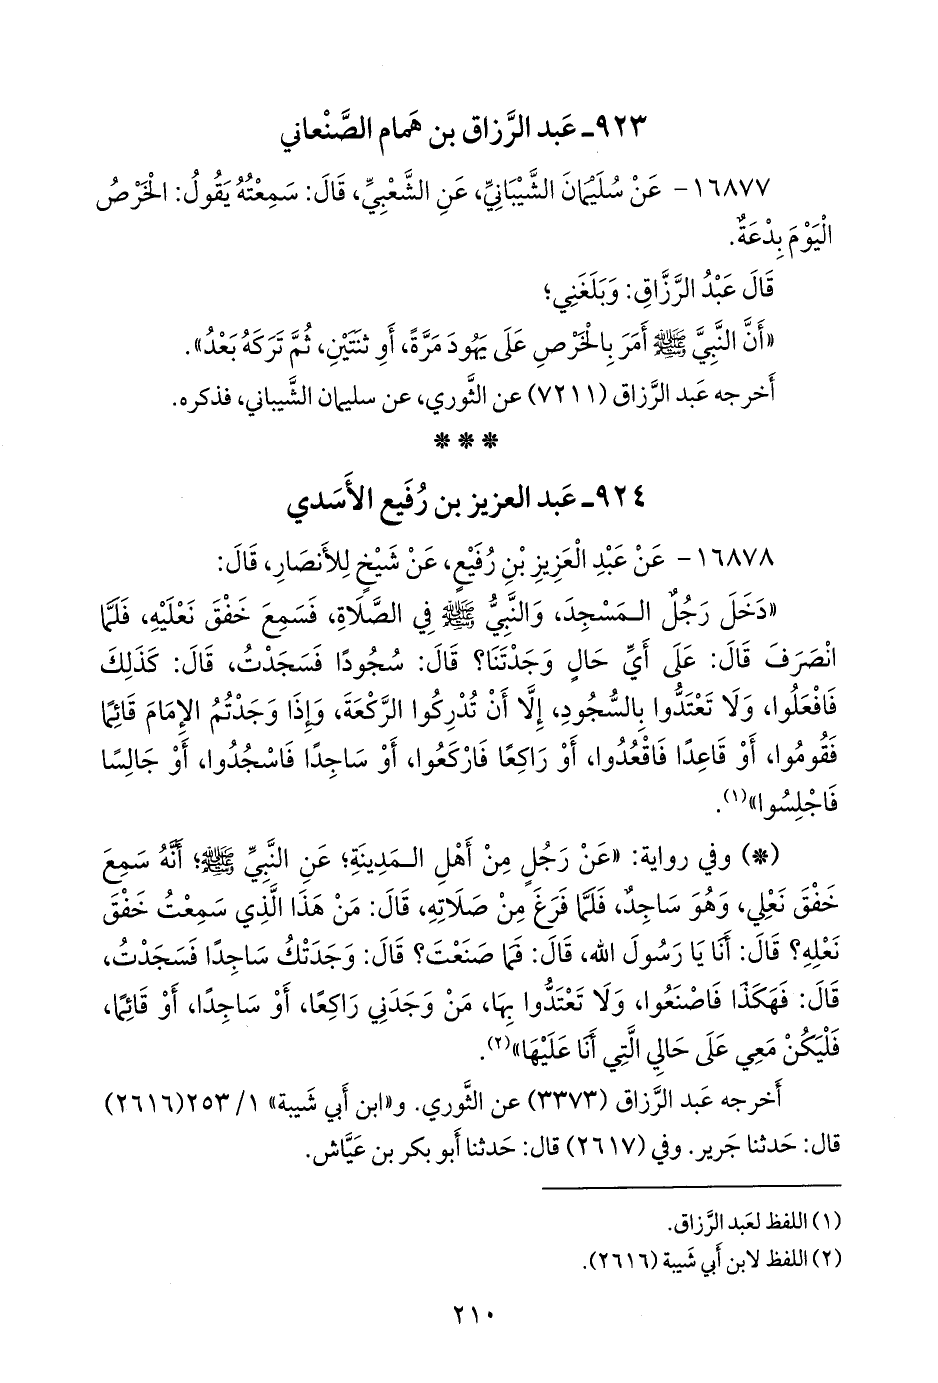 ٩٢٣ـ عَبد الرَّزاق بن همام الصَّنْعاني
١٦٨٧٧ - عَنْ سُلَيْمَانَ الشَّيْبَانِيِّ، عَنِ الشَّعْبِيِّ، قَالَ: سَمِعْتُهُ يَقُولُ: الْخَرْصُ
الْيَوْمَ بِدْعَةٌ.
قَالَ عَبْدُ الرَّزَّاقِ: وَبَلَغَنِي؛
«أَنَّ النَّبِيَّ ﷺ أَمَرَ بِالْخَرْصِ عَلَى يَهُودَ مَرَّةً، أَوِ ثنَتَيْنِ، ثُمَّ تَرَكَهُ بَعْدُ».
أخرجه عَبد الرَّزاق (٧٢١١) عن الثَّوري، عن سليمان الشَّيباني، فذكره.
***
٩٢٤ـ عَبد العزيز بن رُفَيع الأَسَدي
١٦٨٧٨ - عَنْ عَبْدِ الْعَزِيزِ بْنِ رُفَيْعٍ، عَنْ شَيْخٍ لِلأَنصَارِ، قَالَ:
«دَخَلَ رَجُلٌ الـمَسْجِدَ، وَالنَّبِيُّ ﷺ فِي الصَّلَاةِ، فَسَمِعَ خَفْقَ نَعْلَيْهِ، فَلَمَّا
انْصَرَفَ قَالَ: عَلَى أَيِّ حَالٍ وَجَدْتَنَا؟ قَالَ: سُجُودًا فَسَجَدْتُ، قَالَ: كَذَلِكَ
فَافْعَلُوا، وَلَا تَعْتَدُّوا بِالسُّجُودِ، إِلَّا أَنْ تُدْرِكُوا الرَّكْعَةَ، وَإِذَا وَجَدْتُمُ الإِمَامَ قَائِمًا
فَقُومُوا، أَوْ قَاعِدًا فَاقْعُدُوا، أَوْ رَاكِعًا فَارْكَعُوا، أَوْ سَاجِدًا فَاسْجُدُوا، أَوْ جَالِسًا
فَاجْلِسُوا»(١).
(*) وفي رواية: «عَنْ رَجُلٍ مِنْ أَهْلِ الـمَدِينَةِ؛ عَنِ النَّبِيِّ ﷺ؛ أَنَّهُ سَمِعَ
خَفْقَ نَعْلِي، وَهُوَ سَاجِدٌ، فَلَمَّا فَرَغَ مِنْ صَلَاتِهِ، قَالَ: مَنْ هَذَا الَّذِي سَمِعْتُ خَفْقَ
نَعْلِهِ؟ قَالَ: أَنَا يَا رَسُولَ الله، قَالَ: فَمَا صَنَعْتَ؟ قَالَ: وَجَدَتْكُ سَاجِدًا فَسَجَدْتُ،
قَالَ: فَهَكَذَا فَاصْنَعُوا، وَلَا تَعْتَدُّوا بِهَا، مَنْ وَجَدَنِي رَاكِعًا، أَوْ سَاجِدًا، أَوْ قَائِمًا،
فَلْيَكُنْ مَعِي عَلَى حَالِي الَّتِي أَنَا عَلَيْهَا»(٢).
أَخرجه عَبد الرَّزاق (٣٣٧٣) عن الثَّوري. و«ابن أبي شَيبة» ١/ ٢٥٣(٢٦١٦)
قال: حَدثنا جَرير. وفي (٢٦١٧) قال: حَدثنا أَبو بكر بن عَيَّاش.
(١) اللفظ لعَبد الرَّزاق.
(٢) اللفظ لابن أَبي شَيبة (٢٦١٦).
٢١٠